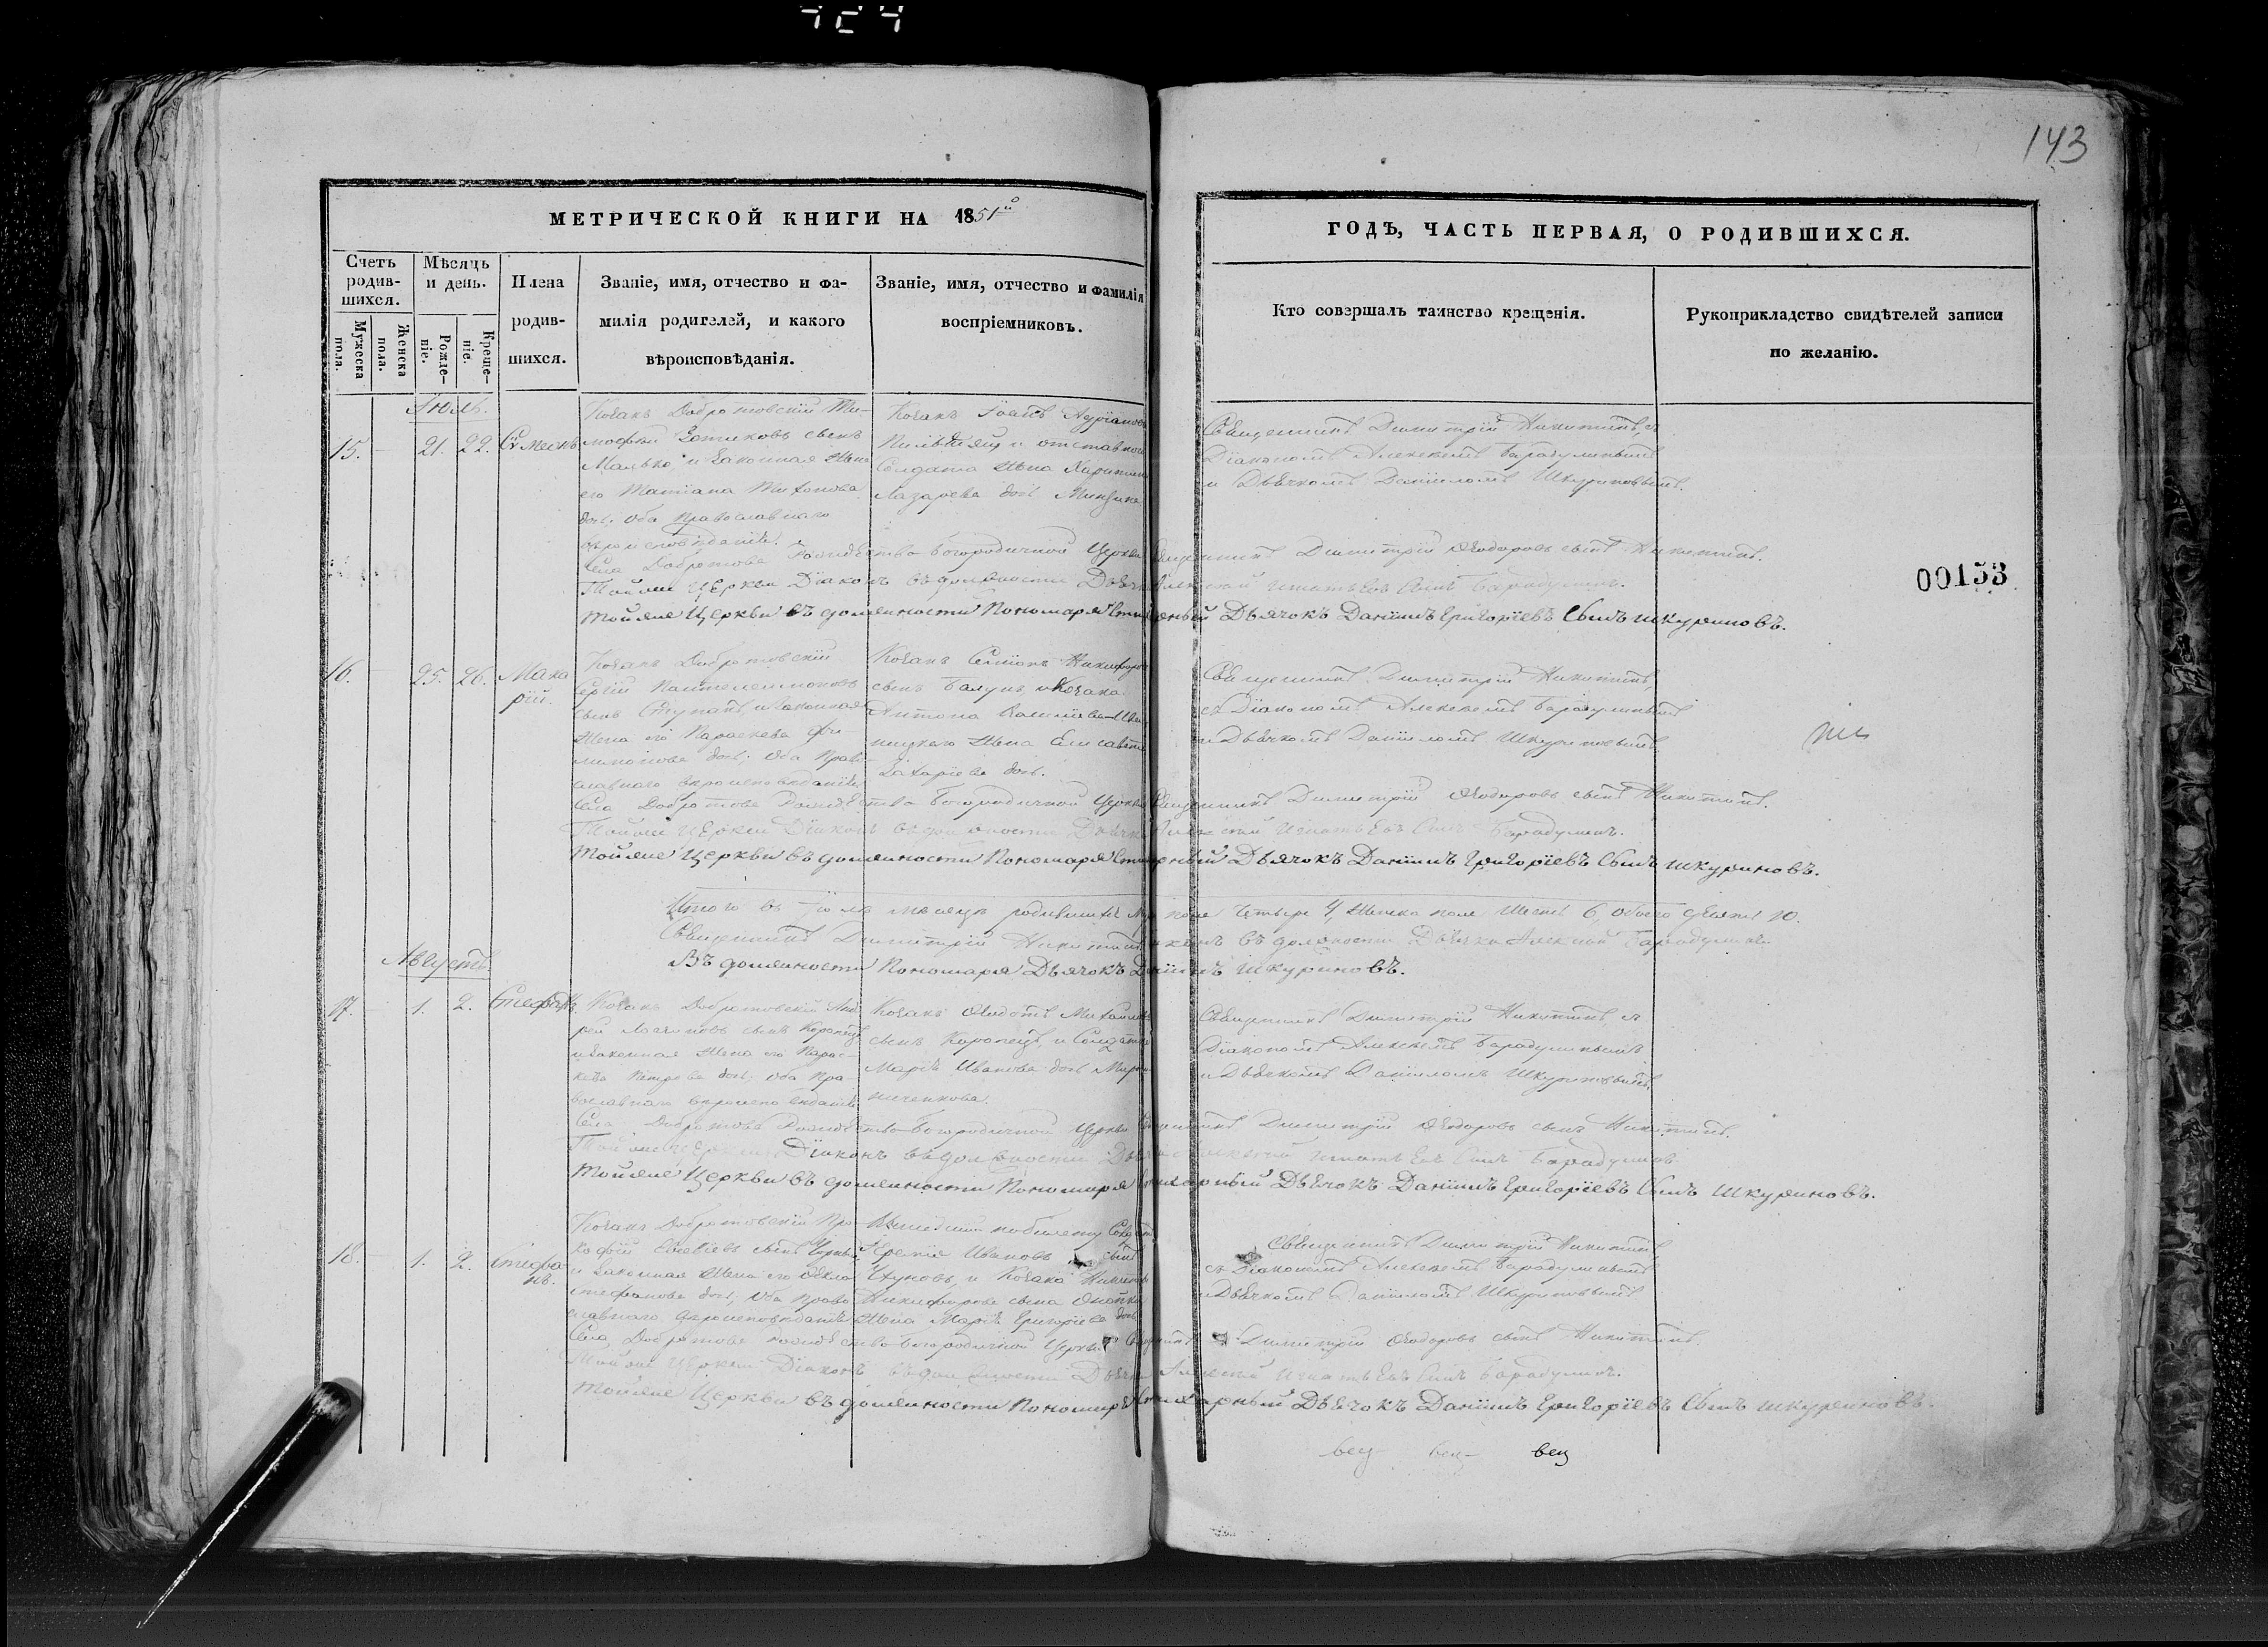 143
МЕТРИЧЕСКОЙ КНИГИ НА 1851й
ГОДЪ, ЧАСТЬ ПЕРВАЯ, О РОДИВШИХСЯ.
Счетъ родив-шихся.
Мужеска пола.
Женска пола.
Мѣсяцъ и день.
Рожде-ніе.
Креще-ніе.
Имена
родив-
шихся.
Званіе, имя, отчество и фа-
милія родителей, и какого
вѣроисповѣданія.
Званіе, имя, отчество и фамилія
воспріемниковъ.
Кто совершалъ таинство крещенія.
Рукоприкладство свидѣтелей записи
по желанію.
Іюль.
15. 21. 22.
Козакъ Добротовскій Ти-
мофей сынъ
Малько, и законная жена
его Татіана Тихонова
дочь, оба православнаго
вѣроисповѣданія.
Козакъ Іоаннъ
и отставнаго
Солдата жена
Лазарева дочь
Священникъ Димитрій Никитинъ, съ
Діакономъ Алексѣемъ Барадулинымъ
и Дьячкомъ Даніиломъ Шкуриновымъ.
Села Добротова Рождество Богородичной Церкви Священникъ Димитрій Ѳеодоровъ сынъ Никитинъ.
Тойже Церкви Діаконъ въ должности Дьячка Алексѣй Игнатьевъ Сынъ Барадулинъ.
Тойже Церкви въ должности Пономаря Стихарный Дьячокъ Даніилъ Григоріевъ Сынъ Шкуриновъ.
00153
16. 25. 26. Мака
рій.
Козакъ Добротовскій
Сергій Пантелеимоновъ
сынъ и законная
жена его Параскева Фи-
лимонова дочь, оба Право-
славнаго вѣроисповѣданія
Козакъ Симіонъ Никифоровъ
сынъ и Козака
Антона
жена Елисавета
Захаріева дочь.
Священникъ Димитрій Никитинъ,
съ Діакономъ Алексѣемъ Барадулинымъ
и Дьячкомъ Даніиломъ Шкуриновымъ
Села Добротова Рождество Богородичной Церкви Священникъ Димитрій Ѳеодоровъ сынъ Никитинъ.
Тойже Церкви Діаконъ въ должности Дьячка Алексѣй Игнатьевъ Сынъ Барадулинъ.
Тойже Церкви въ должности Пономаря Стихарный Дьячокъ Даніилъ Григоріевъ Сынъ Шкуриновъ.
Итого въ Іюлѣ мѣсяцѣ родившихся муж пола четыре 4, женска пола шесть 6, обоего 10.
Священникъ Димитрій Никитинъ въ должности Дьячка Алексѣй Барадулинъ
Въ должности Пономаря Дьячокъ Даніилъ Шкуриновъ.
Августъ.
17. 1. 2. Стефанъ
Козакъ Добротовскій Анд-
рей сынъ Коропецъ
и законная жена его Парас-
кева Петрова дочь, оба Пра-
вославнаго вѣроисповѣданія
Козакъ Ѳедотъ Михаиловъ
сынъ Коропецъ, и Солдатка
Марія Иванова дочь
Священникъ Димитрій Никитинъ съ
Діакономъ Алексѣемъ Барадулинымъ
и Дьячкомъ Даніиломъ Шкуриновымъ.
Села Добротова Рождество Богородичной Церкви Священникъ Димитрій Ѳеодоровъ сынъ Никитинъ.
Тойже Церкви Діаконъ въ должности Дьячка Алексѣй Игнатьевъ Сынъ Барадулинъ.
Тойже Церкви въ должности Пономаря Стихарный Дьячокъ Даніилъ Григоріевъ Сынъ Шкуриновъ.
18. 1. 2. Стефа-
нъ.
Козакъ Добротовскій Про-
кофій сынъ
и законная жена его Ѳекла
Стефанова дочь, оба Право-
славнаго вѣроисповѣданія
Иванова сынъ
и Козака
Никифорова сына
жена Марія Григоріева дочь
Священникъ Димитрій Никитинъ,
съ Діакономъ Алексѣемъ Барадулинымъ
и Дьячкомъ Даніиломъ Шкуриновымъ
Села Добротова Рождество Богородичной Церкви Священникъ Димитрій Ѳеодоровъ сынъ Никитинъ.
Тойже Церкви Діаконъ въ должности Дьячка Алексѣй Игнатьевъ Сынъ Барадулинъ.
Тойже Церкви въ должности Пономаря Стихарный Дьячокъ Даніилъ Григоріевъ Сынъ Шкуриновъ.